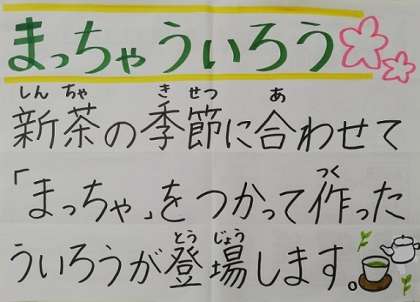 まっちゃういろう
しん ちゃ き せつ あ
新茶の季節に合わせて
つく
「まっちゃ」をつかって作った
とう じょう
ういろうが登場します。